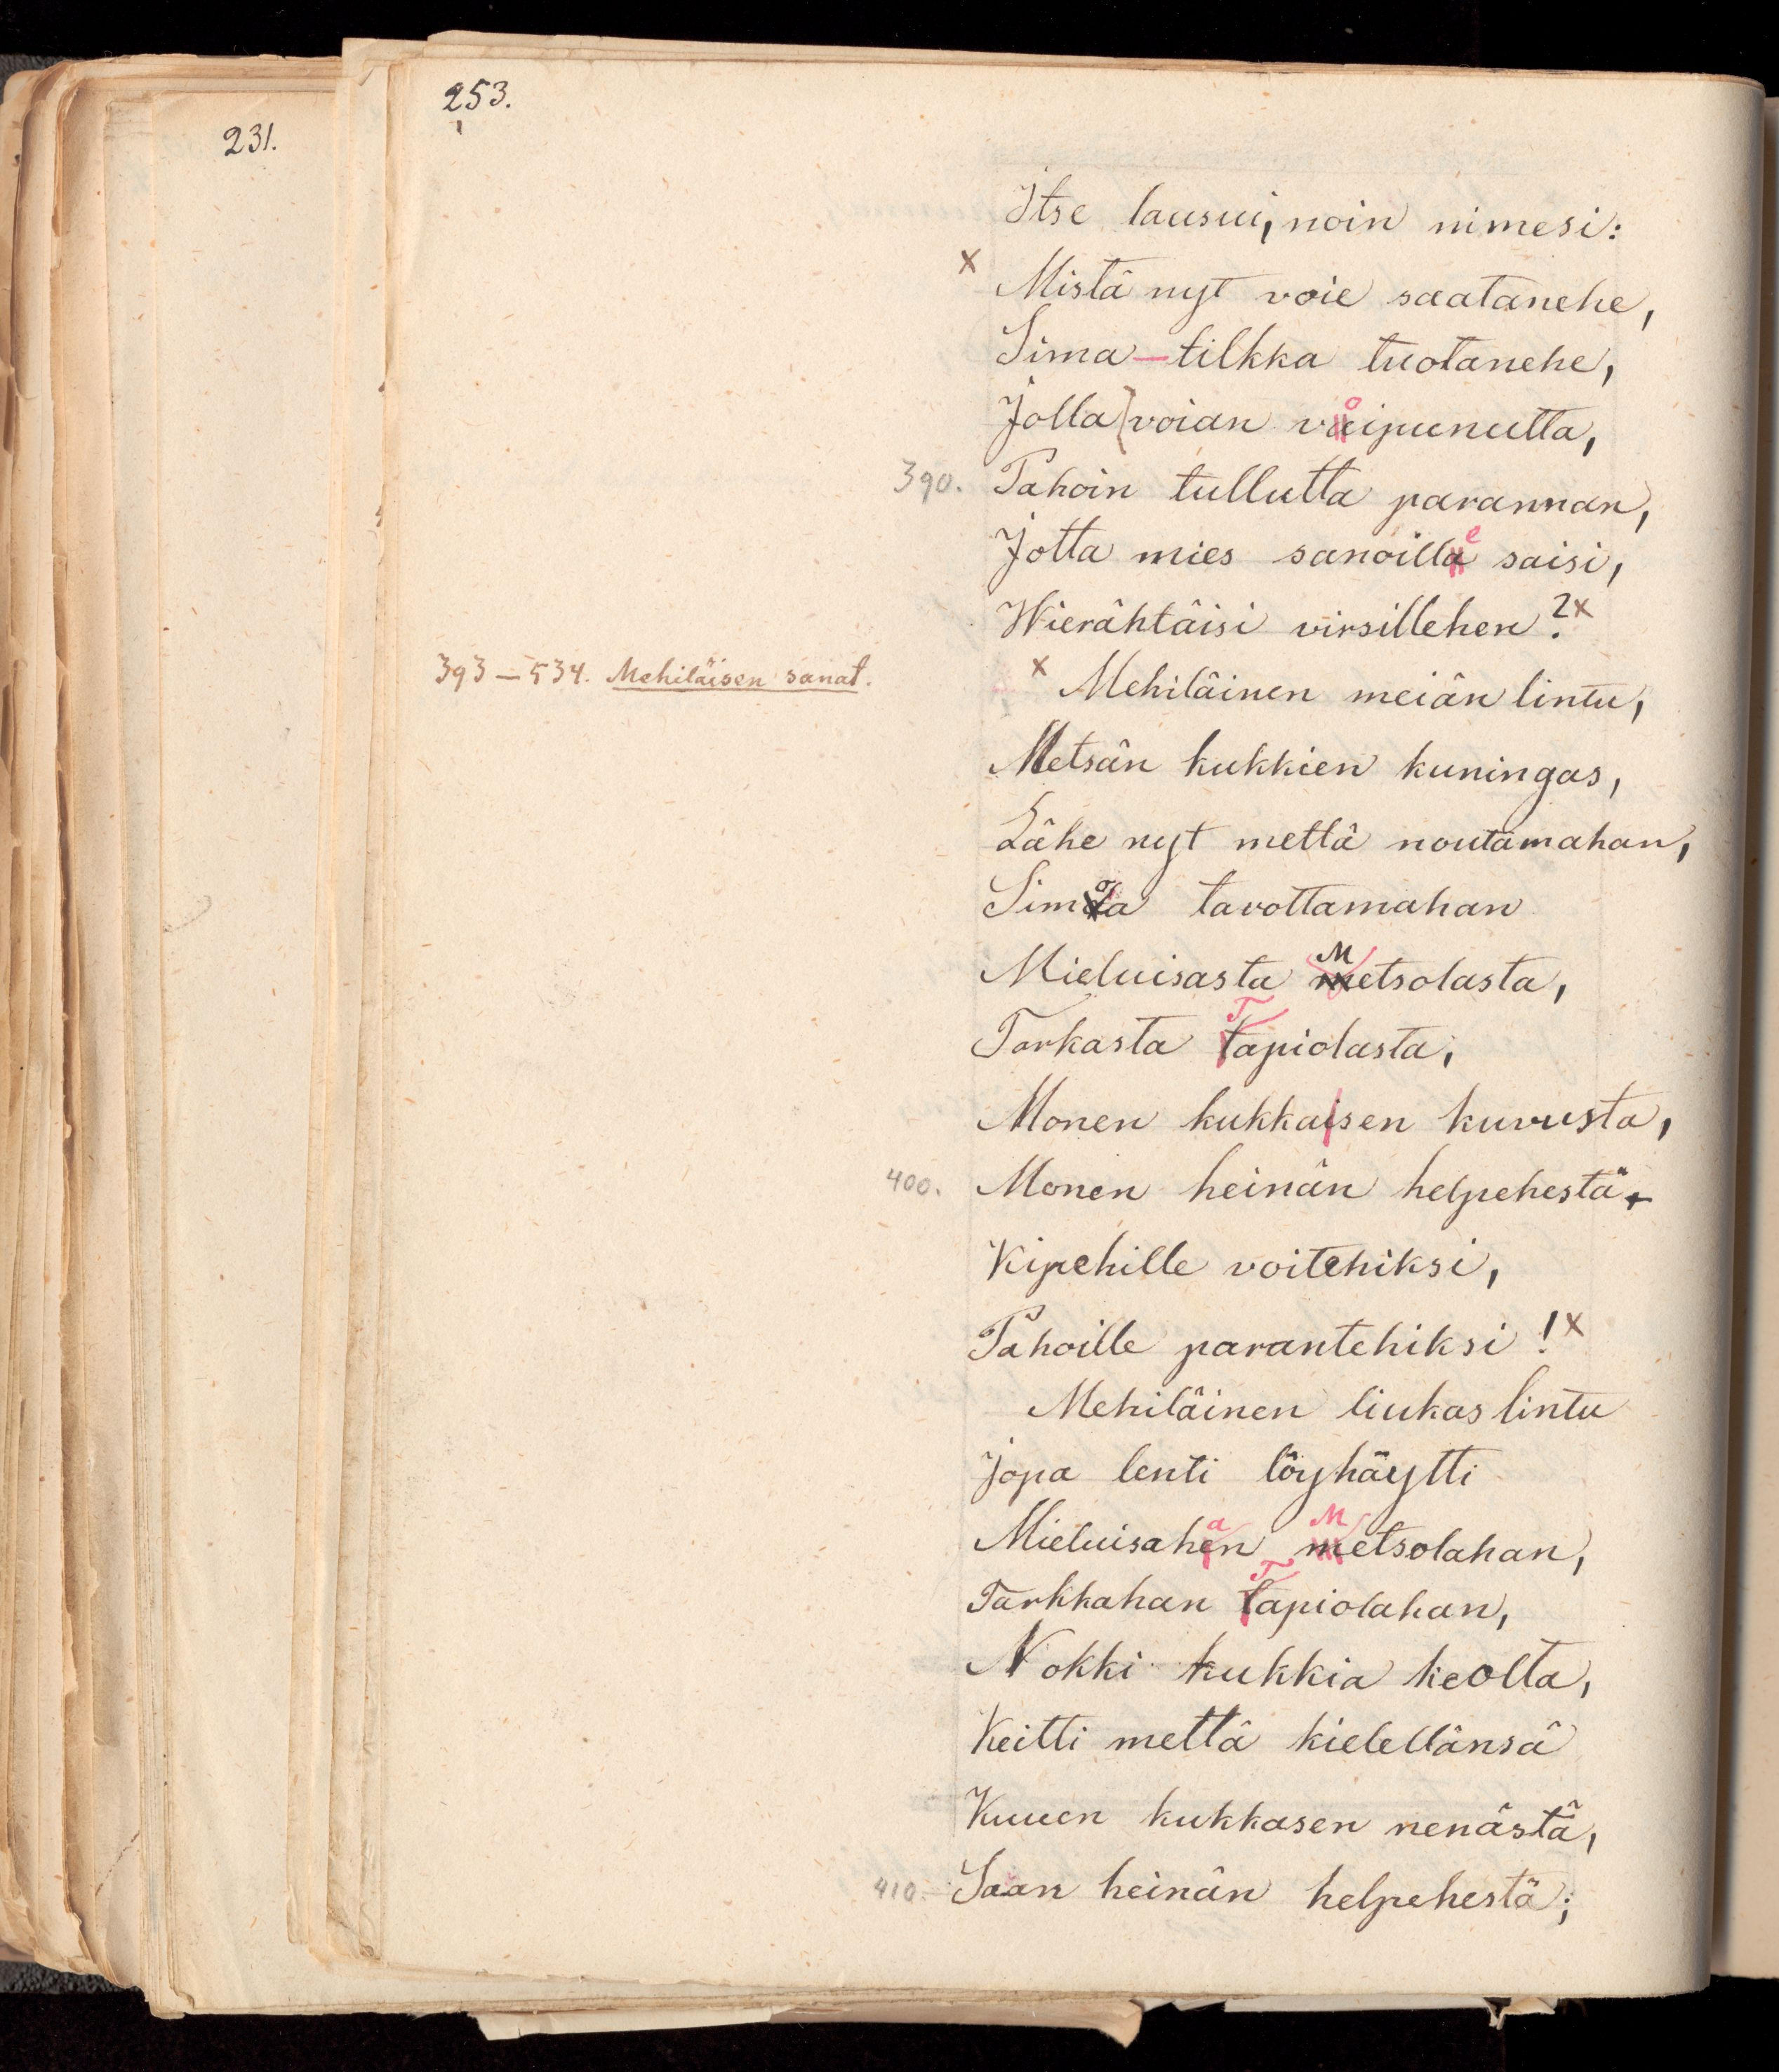 253.
231.
Itse lausui, noin nimesi:
x Mistä nyt voie saatanehe,
Sima-tilkka tuotanehe,
Jolla voian voipunutta,
390. Pahoin tullutta parannan,
Jotta mies sanoille saisi,
Wierähtäisi virsillehen?x
393—534. Mehiläisen sanat.
x Mehiläinen meiän lintu,
Metsän kukkien kuningas,
Lähe nyt mettä noutamahan,
Simoa tavottamahan
Mieluisasta Metsolasta,
Tarkasta Tapiolasta,
Monen kukkasen kuvusta,
400. Monen heinän helpehestä
Kipehille voitehiksi,
Pahoille parantehiksi!x
Mehiläinen liukas lintu
Jopa lenti löyhäytti
Mieluisahan Metsolahan,
Tarkkahan Tapiolahan,
Nokki kukkia keolta,
Keitti mettä kielellänsä
Kuuen kukkasen nenästä,
410. Saan heinän helpehestä;